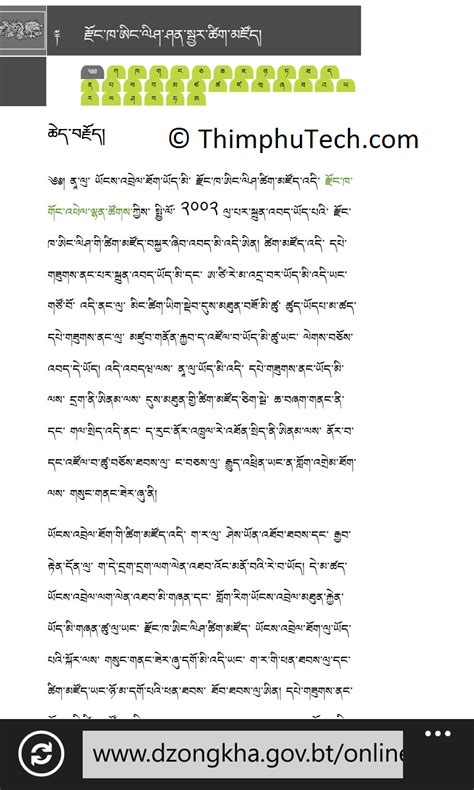 རྫོང་ཁ་ཨིང་ལིཤ་ཤན་སྦྱར་ཚིག་མཛོད།
༉ ཀ ཁ ག ང ཅ ཆ ཇ ཉ ཏ ཐ ད
ན པ ཕ བ མ ཙ ཚ ཛ ཝ ཞ ཟ འ ཡ
ར ལ ཤ ས ཧ ཨ
ཆེད་བརྗོད།
© ThimphuTech.com
༄༅། ནཱ་ལུ་ ཡོངས་འབྲེལ་ཐོག་ཡོད་མི་ རྫོང་ཁ་ཨིང་ལིཤ་ཚིག་མཛོད་འདི་ རྫོང་ཁ་
གོང་འཕེལ་ལྷན་ཚོགས་ཀྱིས་ སྤྱི་ལོ་ ༢༠༠༢ ལུ་པར་སྐྲུན་འབད་ཡོད་པའི་ རྫོང་
ཁ་ཨིང་ལིཤ་གི་ཚིག་མཛོད་བསྐྱར་ཞིབ་འབད་མི་འདི་ཨིན། ཚིག་མཛོད་འདི་ དཔེ་
གཟུགས་ནང་པར་སྐྲུན་འབད་ཡོད་མི་དང་ ཨ་ཙི་རེ་མ་འདྲ་བར་ཡོད་མི་འདི་ཡང་
གཙོ་བོ་ འདི་ནང་ལུ་ མིང་ཚིག་ཡིག་སྡེབ་དུས་མཐུན་བཟོ་མི་ཚུ་ ཚུད་ཡོདཔ་མ་ཚད་
དཔེ་གཟུགས་ནང་ལུ་ མཛུབ་གནོན་རྐྱབ་ད་འཛོལ་བ་ཡོད་མི་ཚུ་ཡང་ ལེགས་བཅོས་
འབད་དེ་ཡོད། འདི་འབདཝ་ལས་ ནཱ་ལུ་ཡོད་མི་འདི་ དཔེ་གཟུགས་ནང་ཡོད་མི་
ལས་ དྲག་ནི་ཨིནམ་ལས་ དུས་མཐུན་གྱི་ཚིག་མཛོད་ཅིག་སྦེ་ ཆ་བཞག་གནང་ནི་
དང་ གལ་སྲིད་འདི་ནང་ ད་རུང་ནོར་འཁྲུལ་རེ་འཐོན་སྲིད་ནི་ཨིནམ་ལས་ ནོར་བ་
དང་འཛོལ་བ་ཚུ་བཅོས་ཐབས་ལུ་ ང་བཅས་ལུ་ རྒྱུད་འཕྲིན་ཡང་ན་གློག་འགྲེམ་ཐོག་
ལས་ གསུང་གནང་ཟེར་ཞུ་ནི།
ཡོངས་འབྲེལ་ཐོག་གི་ཚིག་མཛོད་འདི་ ག་ར་ལུ་ ཤེས་ཡོན་འཐོབ་ཐབས་དང་ རྒྱབ་
རྟེན་དོན་ལུ་ ག་དེ་དྲག་དྲག་ལག་ལེན་འཐབ་འོང་མནོ་བའི་རེ་བ་ཡོད། དེ་མ་ཚད་
ཡོངས་འབྲེལ་ལག་ལེན་འཐབ་མི་གཞན་དང་ གློག་རིག་ཡོངས་འབྲེལ་མཐུན་རྐྱེན་
ཡོད་མི་གཞན་ཚུ་ལུ་ཡང་ རྫོང་ཁ་ཨིང་ལིཤ་ཚིག་མཛོད་ ཡོངས་འབྲེལ་ཐོག་ལུ་ཡོད་
པའི་སྐོར་ལས་ གསུང་གནང་ཟེར་ཞུ་དགོ་མི་འདི་ཡང་ ག་ར་གི་ཕན་ཐབས་ལུ་དང་
ཚིག་མཛོད་ཡང་ཉོ་མ་དགོ་པའི་ཕན་ཐབས་ ཐོབ་ཐབས་ལུ་ཨིན། དཔེ་གཟུགས་ནང་
www.dzongkha.gov.bt/online